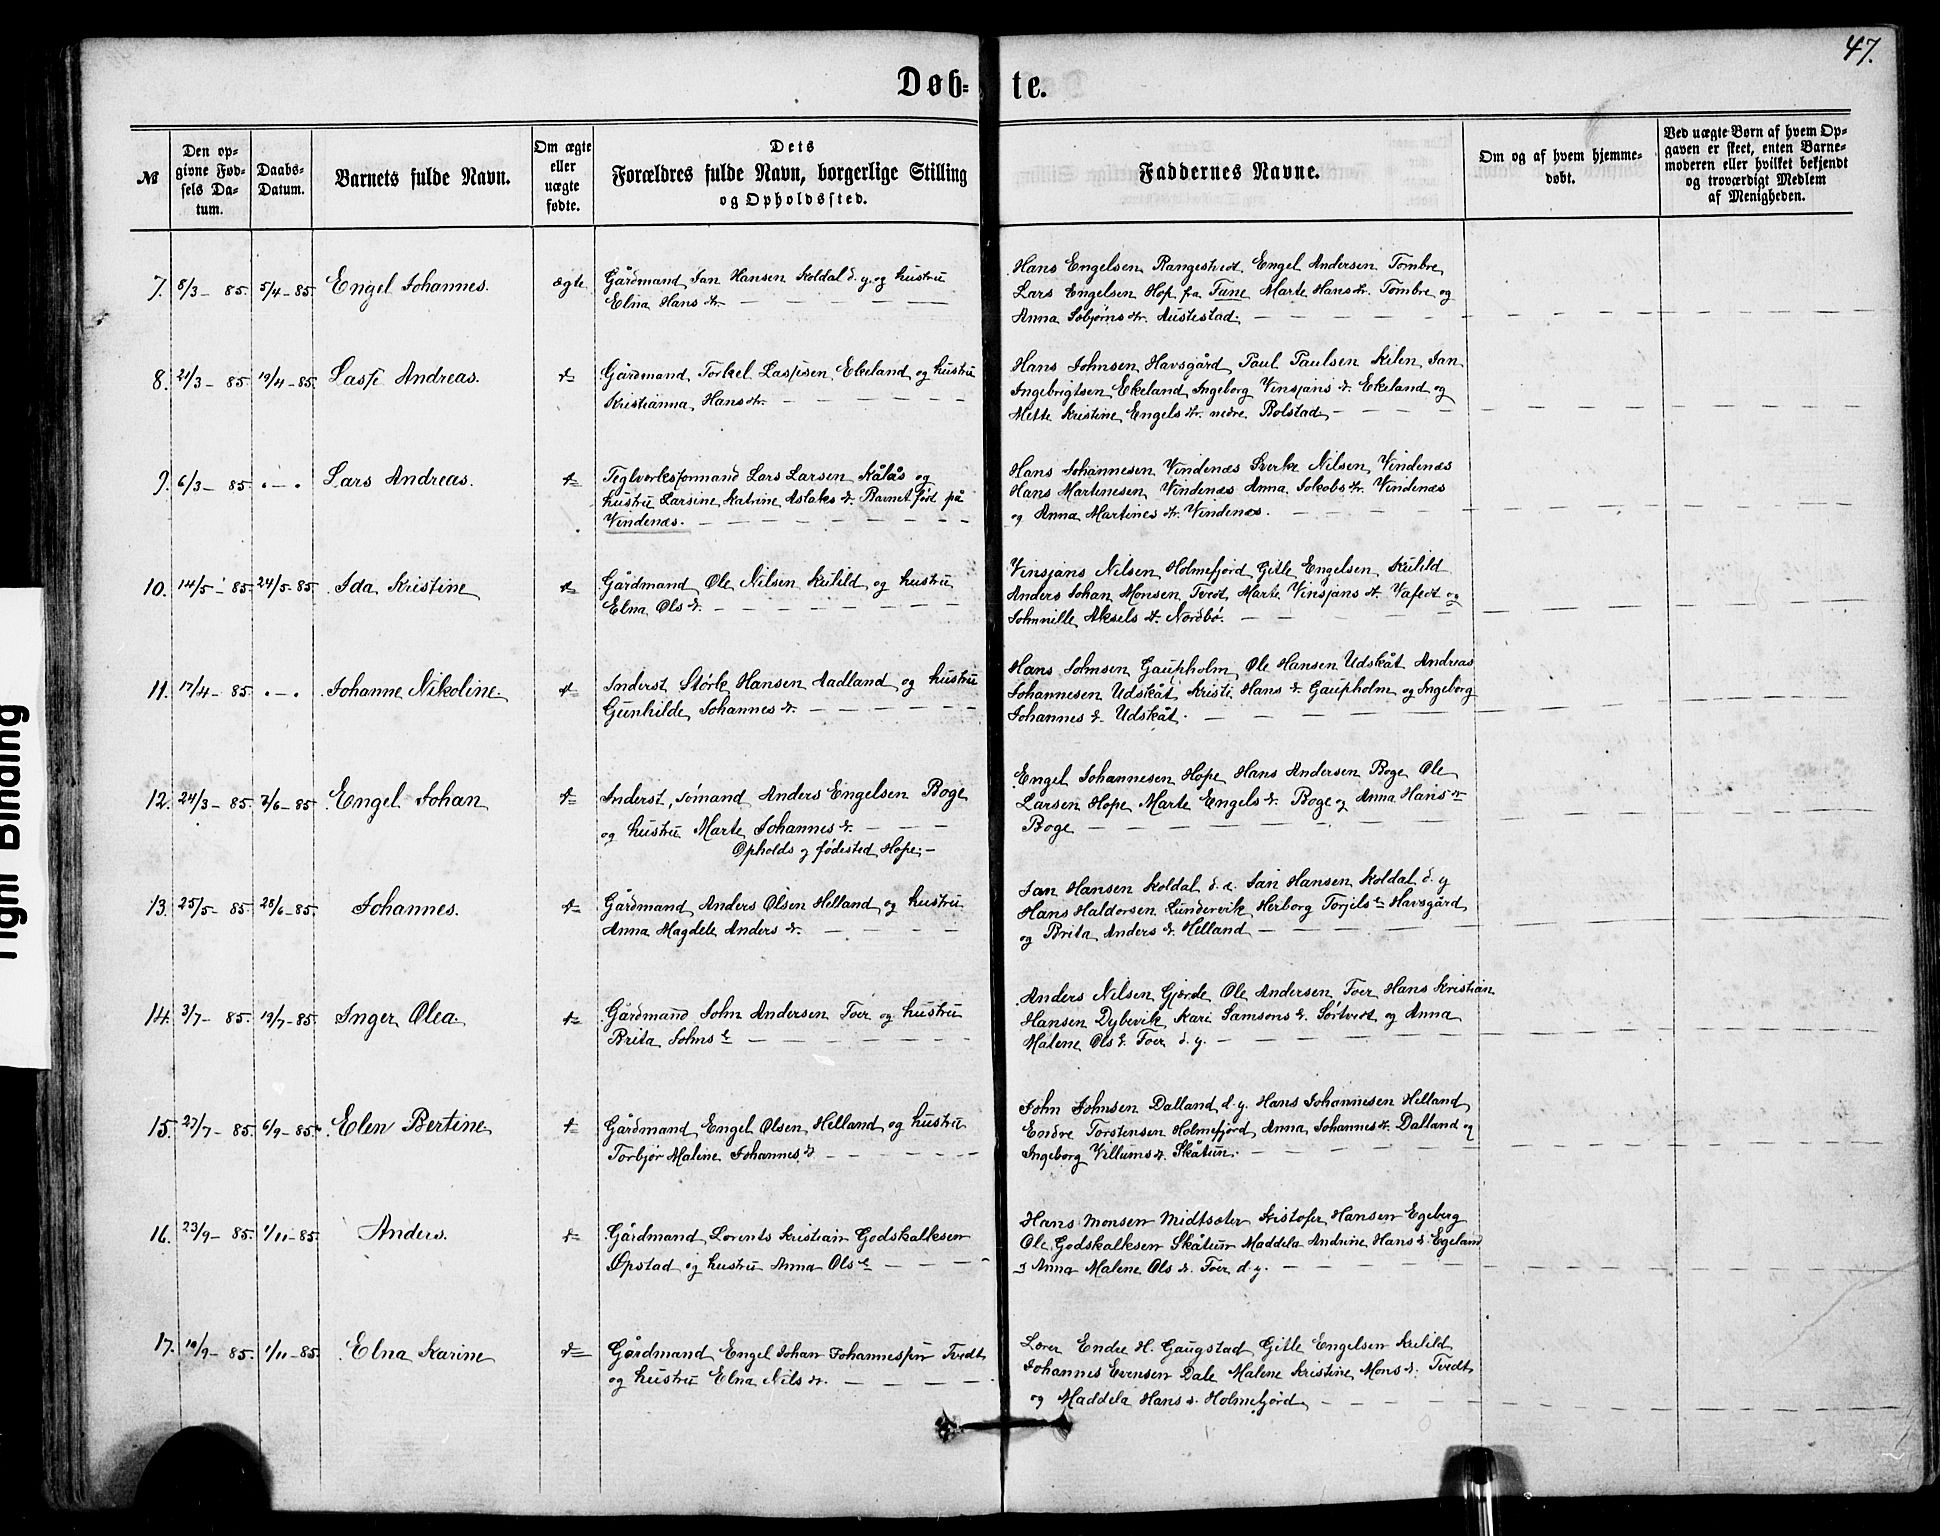 47.
Døb= te.
№
Den opgivne Fødsels Datum.
Daabs-Datum.
Barnets fulde Navn.
Om ægte eller uægte fødte.
Dets Forældres fulde Navn, borgerlige Stilling og Opholdssted.
Faddernes Navne.
Om og af hvem hjemmedøbt.
Ved uægte Børn af hvem Opgaven er skeet, enten Barnemoderen eller hvilket bekjendt og troværdigt Medlem af Menigheden.
7. 8/3 - 85. 5/4 - 85. Engel Johannes. ægte
Gårdmand Jan Hansen Koldal d. y. og hustru
Elna Hans dtr.
Hans Engelsen Rangestvedt, Engel Andersen Tombre
Lars Engelsen Hop fra Tune Marte Hans dtr. Tombre og
Anna Sobjørns dtr. Austestad.
8. 21/3 - 85. 19/4 - 85. Lasse Andreas.
Gårdmand Torkel Lassesen Ekeland og hustru
Kristianna Hans dtr.
Hans Johnsen Havsgård Paul Paulsen Kilen Jan
Ingebrigtsen Ekeland, Ingeborg Vinsjans dr. Ekeland og
Mette Kristine Engels dtr. nedre Bolstad
9. 6/3 - 85. Lars Andreas.
Teglverksformand Lars Larsen Kålås og
hustru Larsine Katrine Aslaks dr. Barnet født på
Vindenæs.
Hans Johannesen Vindenæs Sverke Nilsen Vindenæs
Hans Martinesen Vindenæs Anna Jakobs dtr. Vindenæs
og Anna Martines dtr. Vindenæs.
10. 14/5 - 85. 24/5 - 85. Ida Kristine
Gårdmand Ole Nilsen Kulild og hustru
Elna Ols dr.
Vinsjans Nilsen Holmefjord Gitle Engelsen Kulild
Anders Johan Monsen Tvedt Marte Vinsjans dr. Vafedt og
Johnnille Aksels dr. Nordbø.
11. 17/4 - 85. Johanne Nikoline.
Inderst Størk Hansen Aadland og hustru
Gunhilde Johannes dr.
Hans Johnsen Gaupholm, Ole Hansen Udskåt Andreas
Johannesen Udskåt, Kristi Hans dr. Gaupholm og Ingeborg
Johannes dr. Udskåt.
12. 24/3 - 85. 7/6 - 85. Engel Johan
Inderst, Sømand Anders Engelsen Boge
og hustru Marte Johannes dr.
Opholds og fødested Hope.
Engel Johannesen Hope Hans Andersen Boge Ole
Larsen Hope Marte Engels dr. Boge og Anna Hans dr
Boge
13. 25/5 - 85. 28/6 - 85. Johannes.
Gårdmand Anders Olsen Helland og hustru
Anna Magdele Anders dr.
Jan Hansen Koldal d. æ. Jan Hansen Koldal d. y
Hans Haldorsen Lundervik Herborg Torjels dr Havsgård
og Brita Anders dr. Helland
14. 3/7 - 85. 19/7 - 85. Inger Olea
Gårdmand John Andersen Toer og hustru
Brita Johns dr
Anders Nilsen Gjerde Ole Andersen Toer Hans Kristian
Hansen Dybevik Kari Samsons dr. Sørtvedt og Anna
Malene Ols dr. Toer d. y.
15. 27/7 - 85. 6/9 - 85. Elen Bertine
Gårdmand Engel Olsen Helland og hustru
Torbjør Malene Johannes dr.
John Johnsen Dalland d. y. Hans Johannesen Helland
Endre Torstensen Holmefjord, Anna Johannes dr. Dalland og
Ingeborg Villums dr. Skåtun.
16. 23/9 - 85. 1/11 - 85. Anders.
Gårdmand Lorents Kristian Godskalksen
Øpstad og hustru Anna Ols dr
Hans Monsen Midtsæter Kristofer Hansen Egeberg
Ole Godskalksen Skåtun Maddela Andrine Hans dr. Egeland
og Anna Malene Ols dr. Toer d. y.
17. 19/9 - 85. 1/11 - 85. Elna Karine
Gårdmand Engel Johan Johannessen Tvedt
og hustru Elna Nils dr.
Lærer Endre H. Gaugstad Gitle Engelsen Kulild
Johannes Evensen Dale Malene Kristine Mons dr. Tvedt
og Maddela Hans dr. Holmefjord
Tight Binding